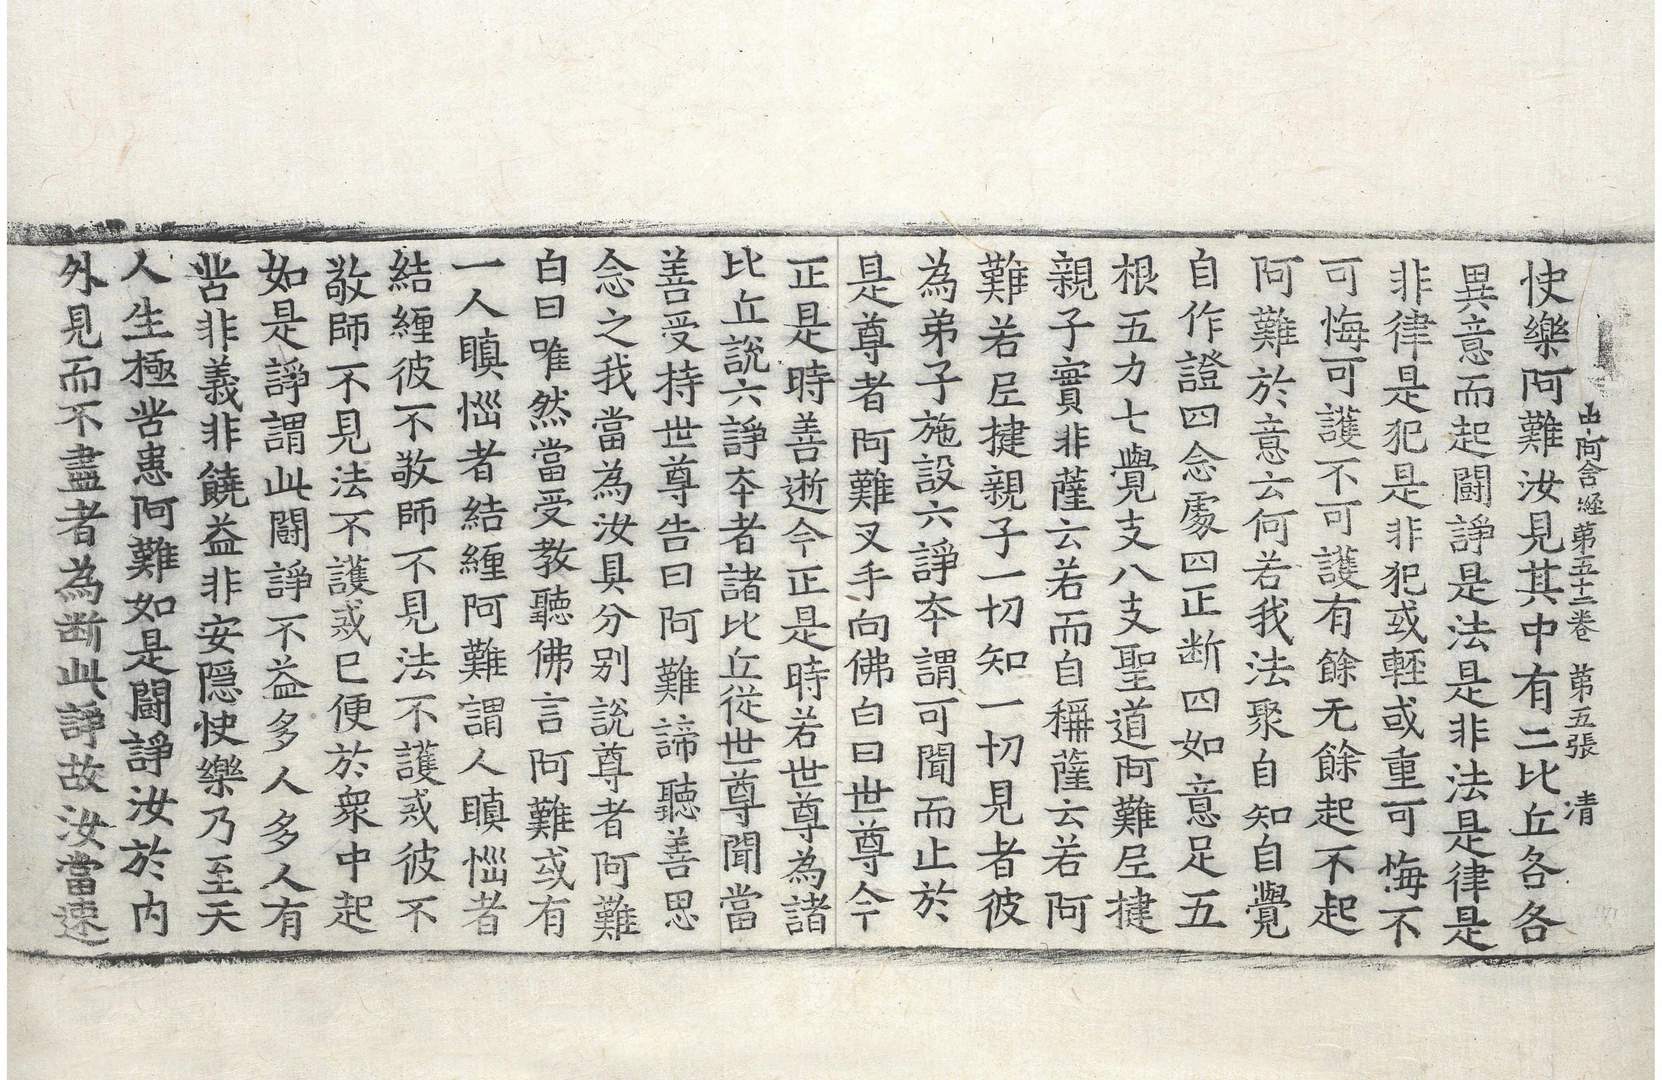 中阿含經第五十二卷 第五張 清
快樂阿難汝見其中有二比丘各各
異意而起鬪諍是法是非法是律是
非律是犯是非犯或輕或重可悔不
可悔可護不可護有餘无餘起不起
阿難於意云何若我法聚自知自覺
自作證四念處四正断四如意足五
根五力七覺支八支聖道阿難尼揵
親子實非薩云若而自稱薩云若阿
難若尼揵親子一切知一切見者彼
為弟子施設六諍夲謂可聞而止於
是尊者阿難叉手向佛白曰世尊今
正是時善逝今正是時若世尊為諸
比丘說六諍夲者諸比丘從世尊聞當
善受持世尊告曰阿難諦聽善思
念之我當為汝具分别說尊者阿難
白曰唯然當受教聽佛言阿難或有
一人瞋惱者結纏阿難謂人瞋惱者
結纏彼不敬師不見法不護戒彼不
敬師不見法不護戒已便於衆中起
如是諍謂此鬪諍不益多人多人有
苦非義非饒益非安隱快樂乃至天
人生極苦患阿難如是鬪諍汝於内
外見而不盡者為断此諍故汝當速